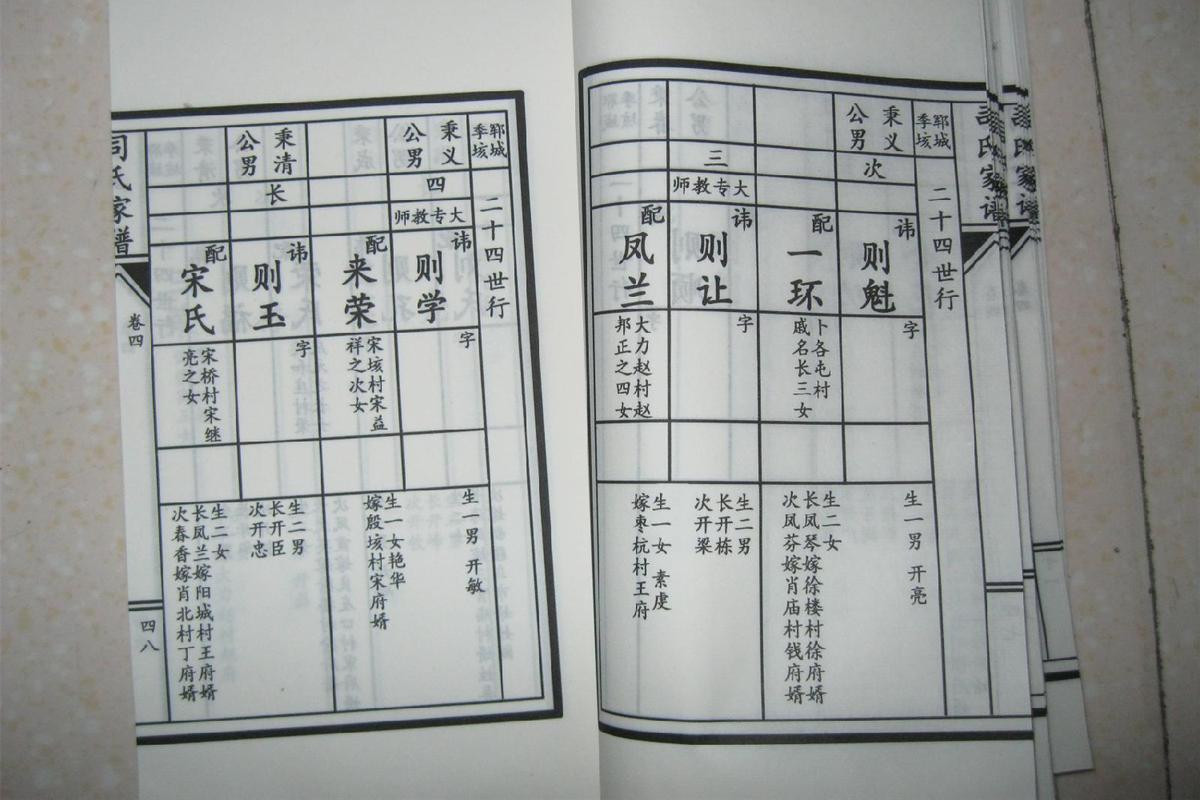 郓城
季垓
二十四世行
秉义
公男
次
讳
则魁
字
生一男 开亮
配
一环
卜各屯村
戚名长三女
生二女
长凤琴嫁徐楼村徐府婿
次凤芬嫁肖庙村钱府婿
三
大专教师
讳
则让
字
生二男
长开栋
次开梁
配
凤兰
大力赵村赵
邦正之四女
生一女 素虔
嫁枣杭村王府
郓城
季垓
二十四世行
秉义
公男
四
大专教师
讳
则学
字
生一男 开敏
配
来荣
宋垓村宋益
祥之次女
生一女艳华
嫁殷垓村宋府婿
秉清
公男
长
讳
则玉
字
生二男
长开臣
次开忠
配
宋氏
宋桥村宋继
亮之女
生二女
长凤兰嫁阳城村王府婿
次春香嫁肖北村丁府婿
司氏家谱
卷四
四八